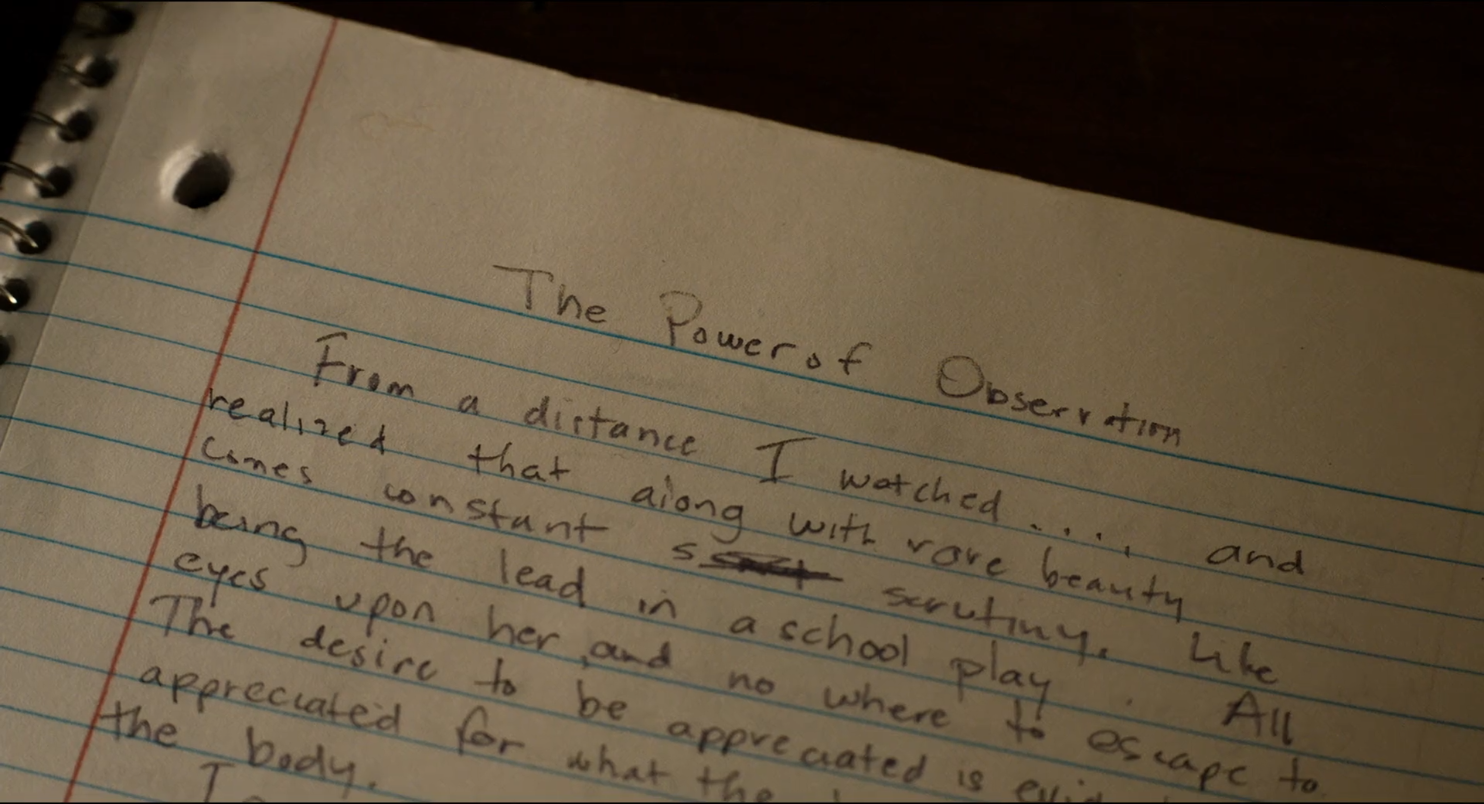 The Power of Observation
From a distance I watched .... and
realized that along with rare beauty
comes constant scrutiny. Like
being the lead in a school play. All
eyes upon her and no where to escape to.
The desire to be appreciated is
appreciated for what the
the body.